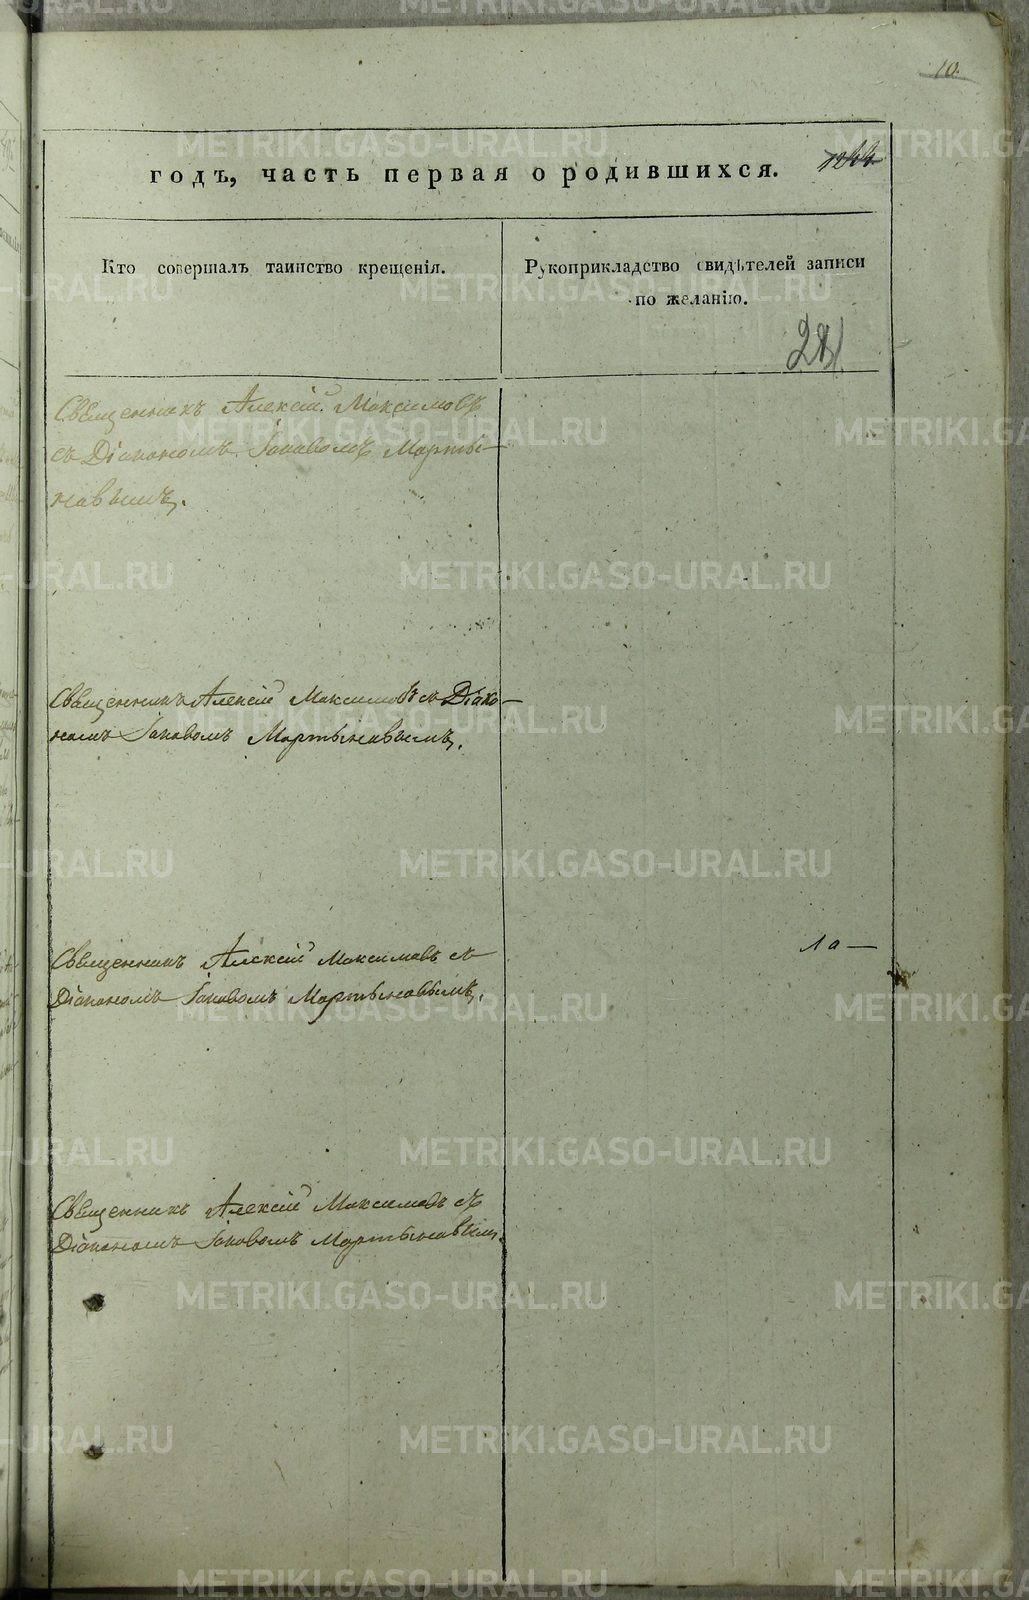 10.
годъ, часть первая о родившихся.
Кто совершалъ таинство крещенія.
Рукоприкладство свидѣтелей записи
по желанію.
Священникъ Алексій Максимовъ
съ Діакономъ Іаковомъ Марты-
новымъ.
Священникъ Алексій Максимовъ съ Діако-
номъ Іаковомъ Мартыновымъ.
Священникъ Алексій Максимовъ съ
Діакономъ Іаковомъ Мартыновымъ.
Священникъ Алексій Максимовъ съ
Діакономъ Іаковомъ Мартыновымъ.
METRIKI.GASO-URAL.RU